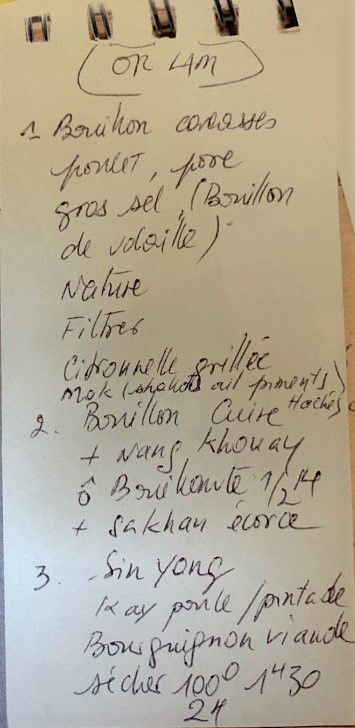 OR LAM
1. Bouillon carcasses
poulet, porc
gros sel, (Bouillon
de volaille)
Nature
Filtrer
Citronnelle grillée
Mok (échalote ail piments)
Hachés
2. Bouillon Cuire
+ Nang Khouay
ô Bouillonté 1/2 H
+ Sakhan écorce
3. Sin Yong
Kay poule / pintade
Bourguignon viande
sécher 100° 1H30
2H